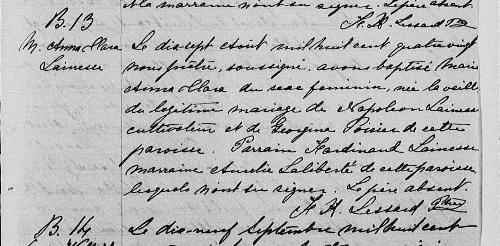 et la marraine n'ont su signer. Le père absent.
A. H. Lessard Ptre
B. 13
M. Anna-Clara
Lainesse
Le dix-sept Août mil huit cent quatre vingt
nous prêtre, soussigné, avons baptisé Marie
Anna-Clara du sexe féminin, née la veille
du légitime mariage de Napoléon Lainesse
cultivateur et de Georgina Poirier de cette
paroisse. Parrain Ferdinand Lainesse
marraine Aurelie Laliberté de cette paroisse
lesquels n'ont su signer. Le père absent.
A. H. Lessard Ptre
B. 14
Le dix-neuf Septembre mil huit cent